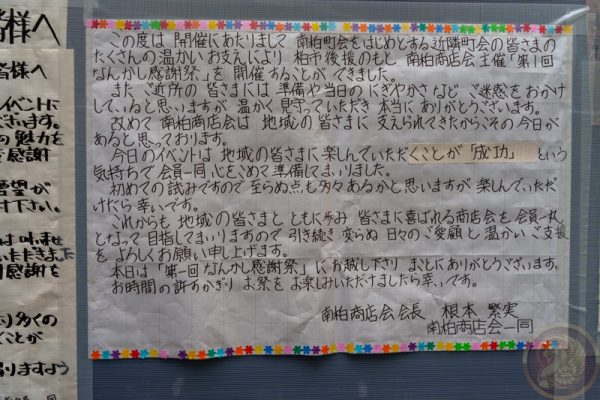 この度は 開催にあたりまして 南柏町会をはじめとする近隣町会の皆さまの
たくさんの温かいお支えにより 柏市後援のもと 南柏商店会主催「第1回
なんかし感謝祭」を 開催することができました。
また ご近所の 皆さまには 準備や当日の にぎやかさなど ご迷惑をおかけ
していると思いますが 温かく 見守っていただき 本当に ありがとうございます。
改めて 南柏商店会は 地域の 皆さまに 支えられてきたからこその 今日が
あると思っております。
今日のイベントは 地域の皆さまに 楽しんでいただくことが「成功」 という
気持ちで 会員一同 心をこめて 準備してまいりました。
初めての試みですので 至らぬ点も多々あるかと思いますが 楽しんでいただ
けたら 幸いです。
これからも 地域の皆さまと ともに歩み 皆さまに喜ばれる商店会を 会員一丸
となって 目指してまいりますので 引き続き 変らぬ 日々の ご愛顧と 温かい ご支援
を よろしくお願い申し上げます。
本日は「第一回 なんかし感謝祭」に お越し下さり まことにありがとうございます。
お時間の許すかぎり お祭を お楽しみいただけましたら 幸いです。
南柏商店会会長 根本 繁実
南柏商店会一同
皆様へ
皆様へ
イベントに
ございます。
の魅力を
感謝
愛望が
対下さい。
多くの
ことが